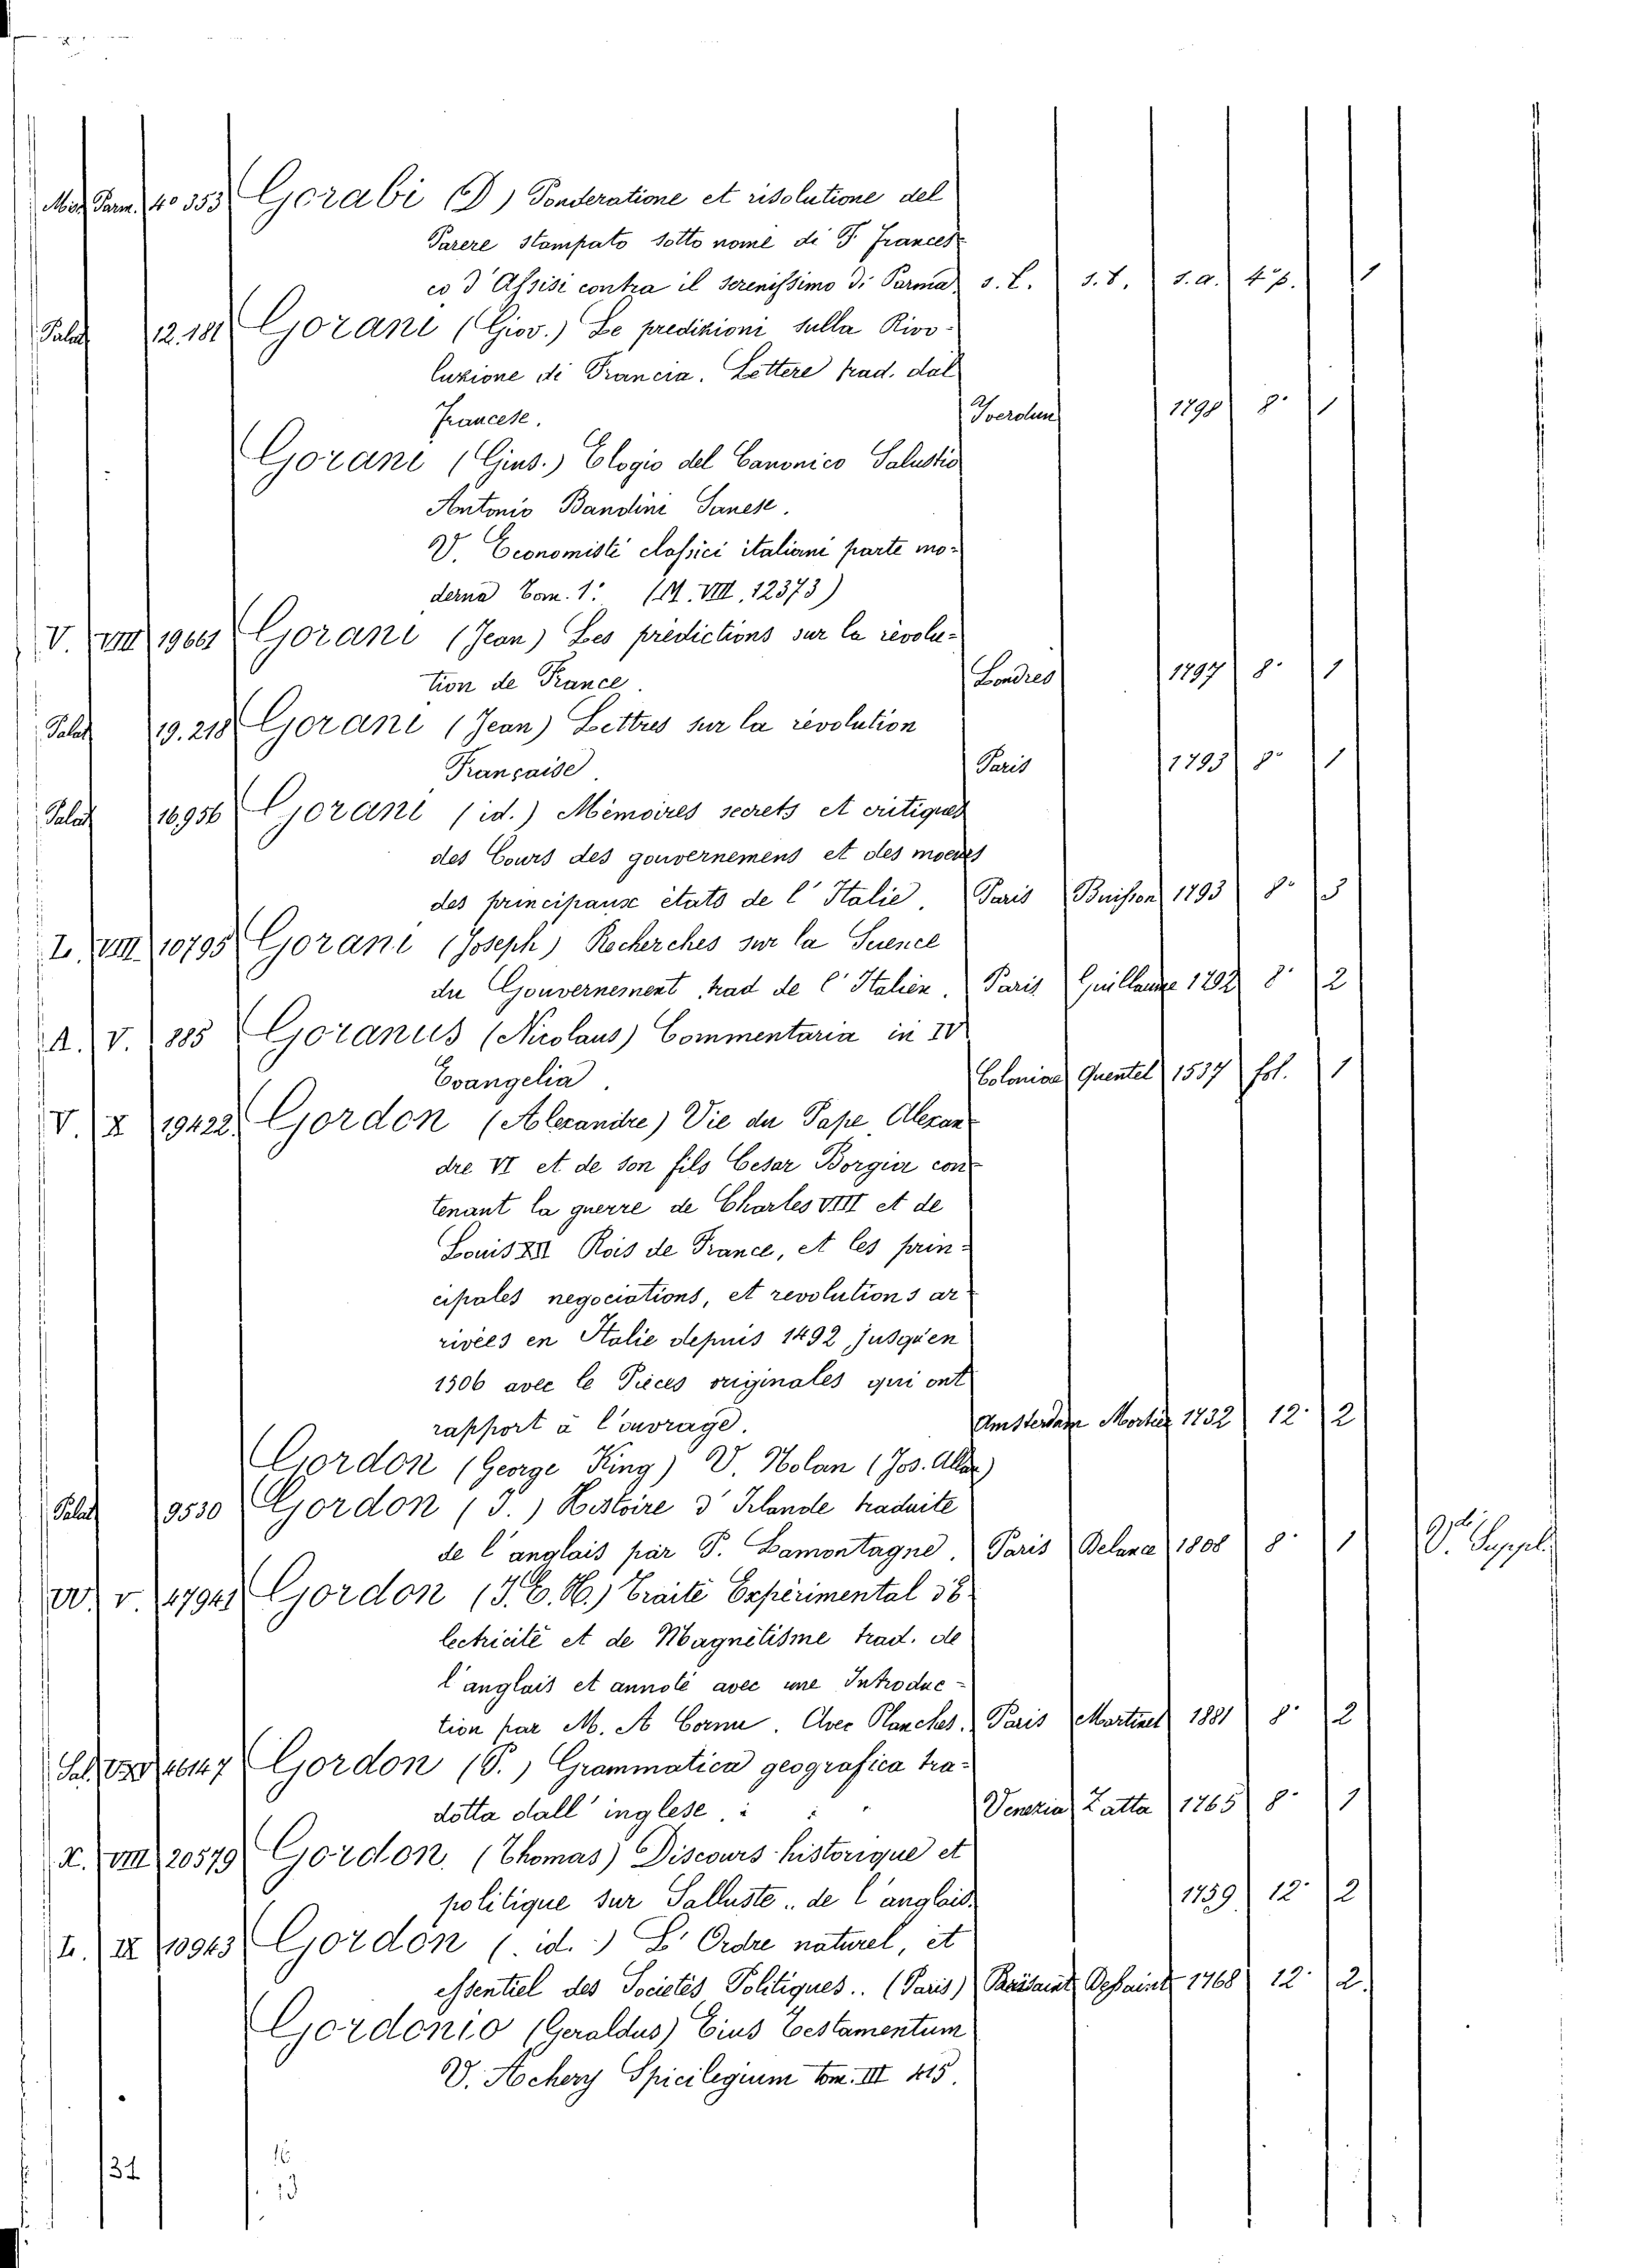 Misc. Parm. 4º 353 Gorabi (D) Ponderatione et risolutione del
Parere stampato sotto nome di F. Frances
co d'Assisi contra il serenissimo di Parma. s. L. s. t. s. a. 4º p. 1
Palat 12.181 Gorani (Giov.) Le predizioni sulla Rivo-
luzione di Francia. Lettere trad. dal
Francese. Iverdun 1798 8º 1
Gorani (Gius.) Elogio del Canonico Salustio
Antonio Bandini Sanese.
V. Economisti classici italiani parte mo-
derna Tom. 1º (M. VIII, 12373)
V. VIII 19661 Gorani (Jean) Les prédictions sur la révolu-
tion de France. Londres 1797 8º 1
Palat 19.218 Gorani (Jean) Lettres sur la révolution
Française. Paris 1793 8º 1
Palat 16956 Gorani (id.) Mémoires secrets et critiques
des Cours des gouvernemens et des moeurs
des principaux états de l'Italie. Paris Buisson 1793 8º 3
L. VIII. 10795 Gorani (Joseph) Recherches sur la Science
du Gouvernement, trad de l'Italien. Paris Guillaume 1792 8º 2
A. V. 885 Goranus (Nicolaus) Commentaria in IV
Evangelia. Coloniae Quentel 1537 fol. 1
V. X 19422. Gordon (Alexandre) Vie du Pape Alexan-
dre VI et de son fils Cesar Borgia con-
tenant la guerre de Charles VIII et de
Louis XII Rois de France, et les prin-
cipales negociations, et revolutions ar-
rivées en Italie depuis 1492 jusqu'en
1506 avec le Pièces originales qui ont
rapport à l'ouvrage. Amsterdam Mortier 1732 12º 2
Gordon (George King) V. Nolan (Jos. Allan)
Palat 9530 Gordon (J.) Histoire d'Irlande traduite
de l'anglais par P. Lamontagne. Paris Delance 1808 8º 1 V. Suppl.
W. V. 47941 Gordon (J. E. H.) Traité Expérimental d'E-
lectricité et de Magnétisme trad. de
l'anglais et annoté avec une Introduc-
tion par M. A Cornu. Avec Planches. Paris Martinet 1881 8º 2
Sal. 46147 Gordon (P.) Grammatica geografica tra-
dotta dall'inglese. Venezia Zatta 1765 8º 1
X. VIII 20579 Gordon. (Thomas) Discours historique et
politique sur Salluste.. de l'anglais. 1759 12º 2
L. IX 10943 Gordon (id.) L'Ordre naturel, et
essentiel des Societés Politiques.. (Paris) Dessaint 1768 12º 2.
Gordonio (Geraldus) Eius Testamentum
V. Achery Spicilegium tom. III 415.
16
31
13